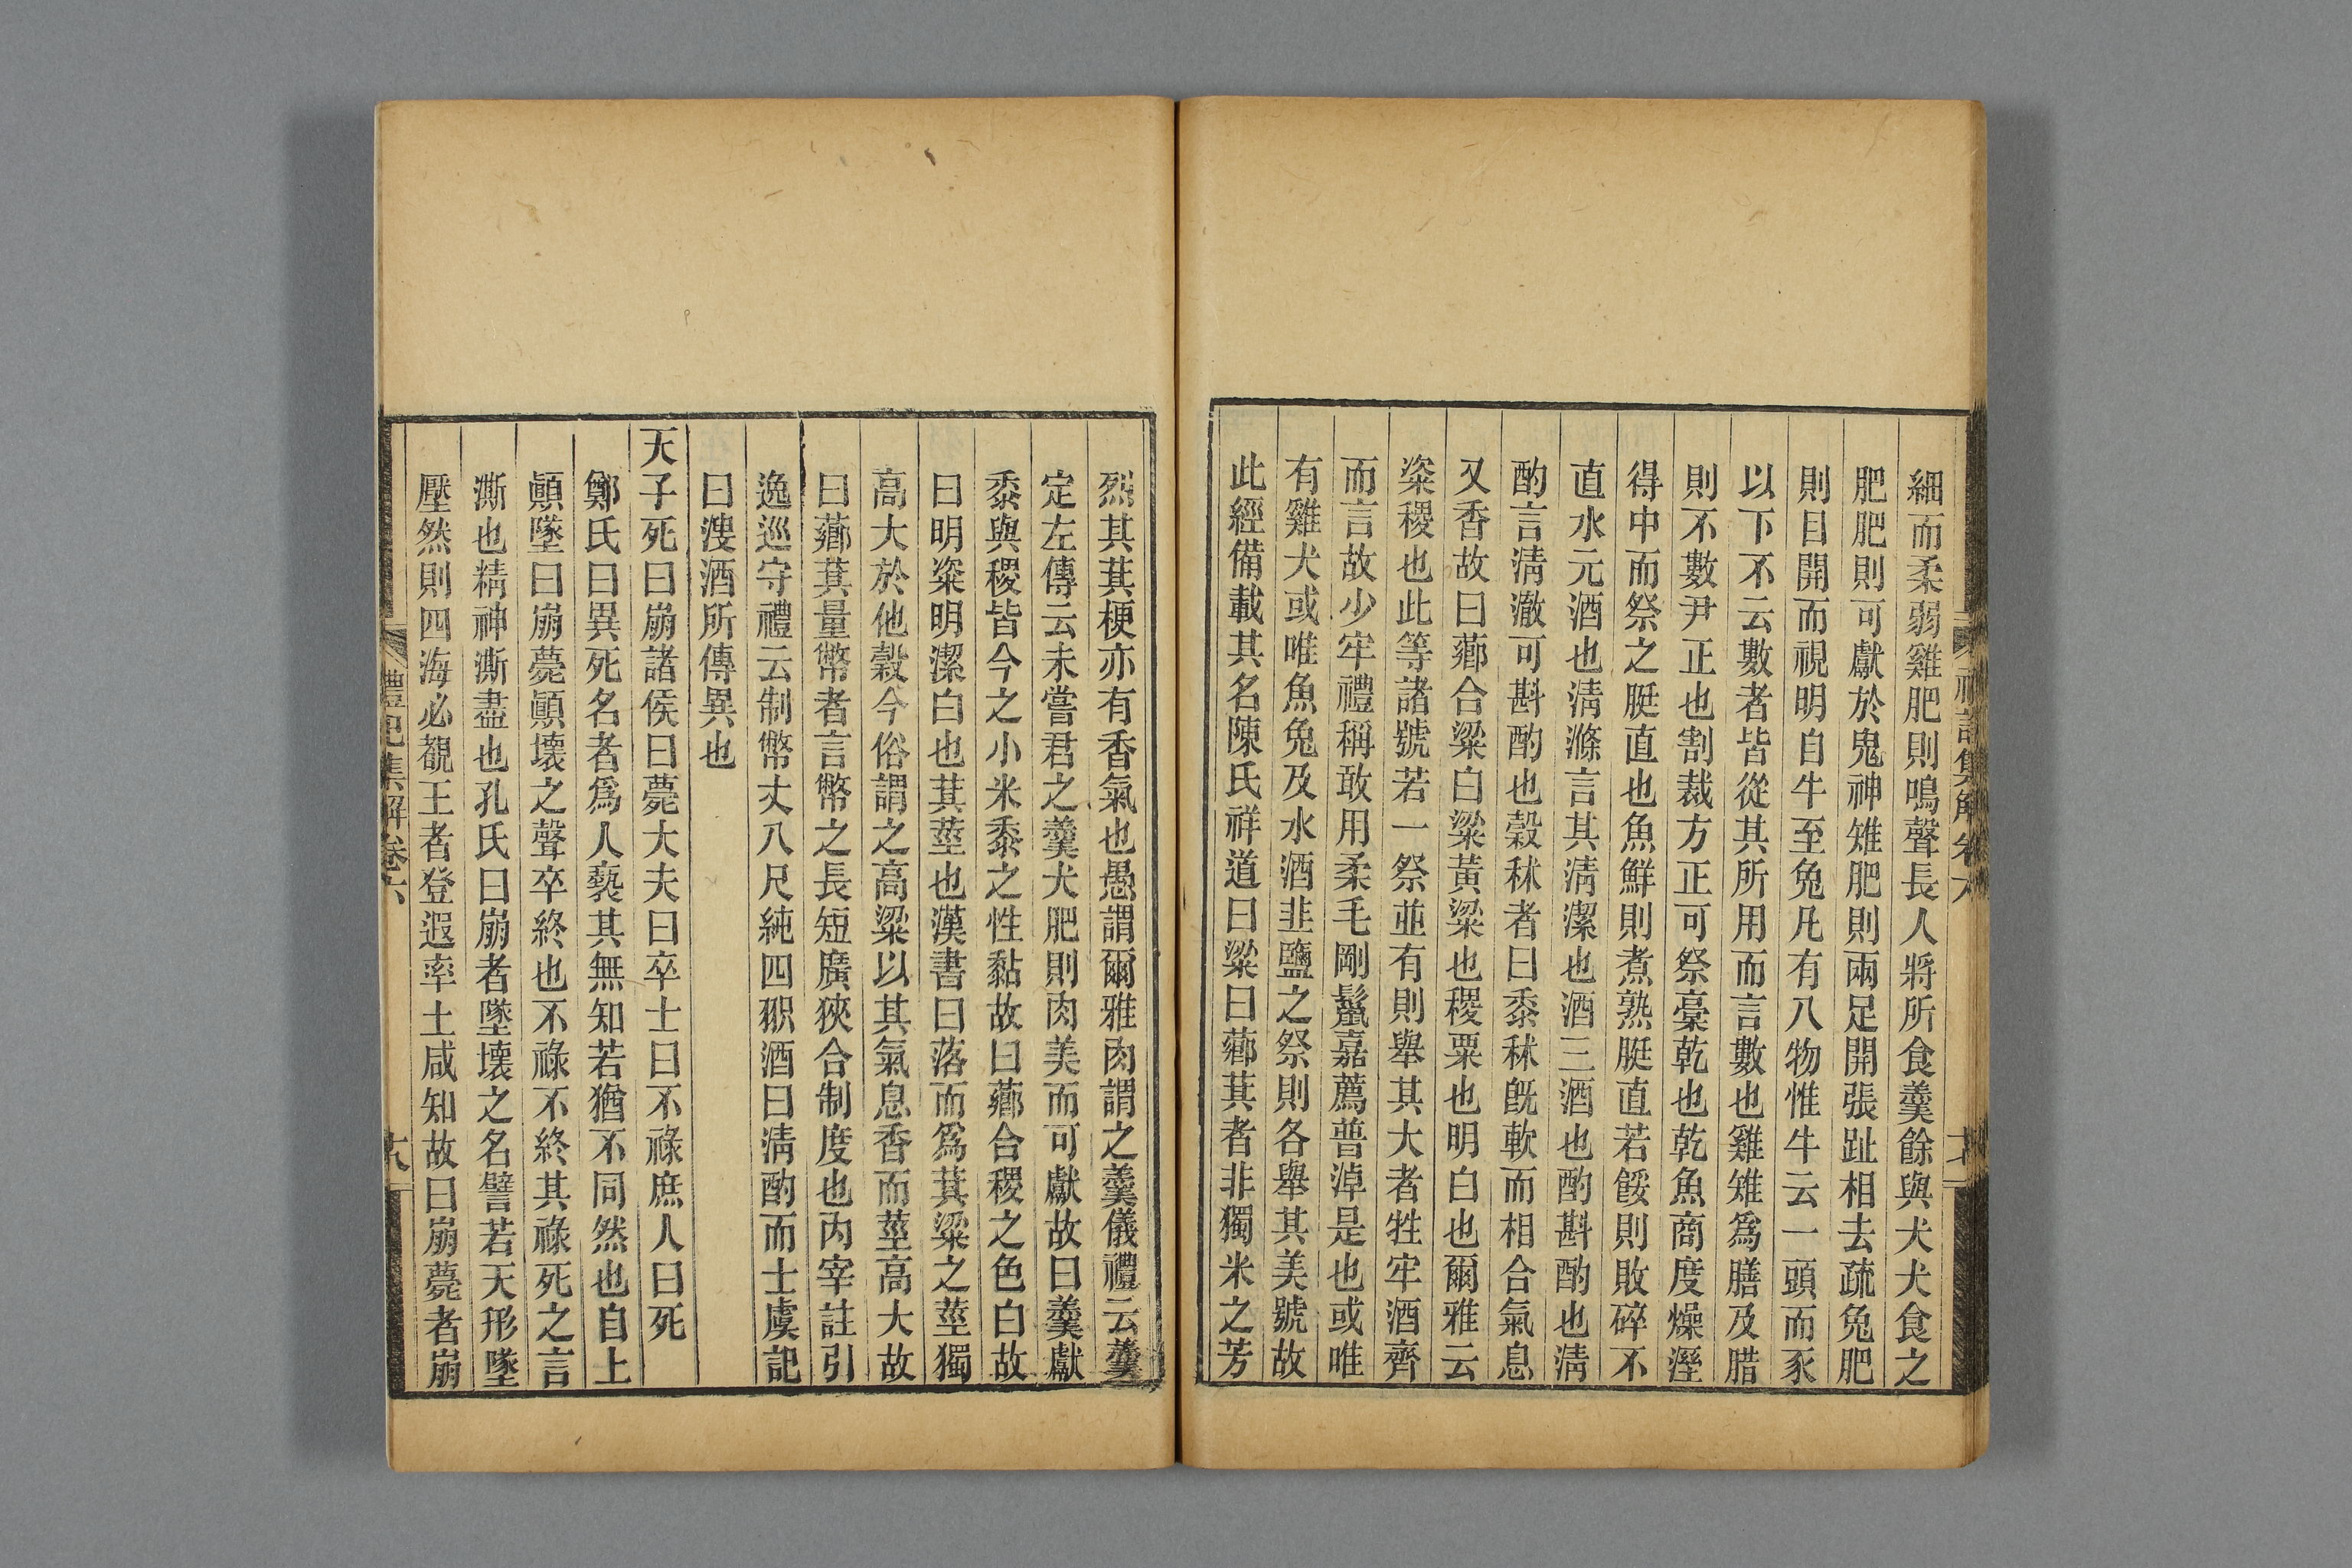 細而柔弱雞肥則鳴聲長人將所食羹餘與犬犬食之
肥肥則可獻於鬼神雉肥則兩足開張趾相去疏兔肥
則目開而視明自牛至兔凡有八物惟牛云一頭而豕
以下不云數者皆從其所用而言數也雞雉爲膳及腊
則不數尹正也割裁方正可祭稾乾也乾魚商度燥溼
得中而祭之脡直也魚鮮則煮熟脡直若餒則敗碎不
直水元酒也淸滌言其淸潔也酒三酒也酌斟酌也淸
酌言淸澈可斟酌也穀秫者曰黍秫旣軟而相合氣息
又香故曰薌合粱白粱黃粱也稷粟也明白也爾雅云
粢稷也此等諸號若一祭並有則舉其大者牲牢酒齊
而言故少牢禮稱敢用柔毛剛鬣嘉薦普淖是也或唯
有雞犬或唯魚兔及水酒韭鹽之祭則各舉其美號故
此經備載其名陳氏祥道曰粱曰薌萁者非獨米之芳
烈其萁梗亦有香氣也愚謂爾雅肉謂之羹儀禮云羹
定左傳云未嘗君之羹犬肥則肉美而可獻故曰羹獻
黍與稷皆今之小米黍之性黏故曰薌合稷之色白故
曰明粢明潔白也萁莖也漢書曰落而爲萁粱之莖獨
高大於他穀今俗謂之高粱以其氣息香而莖高大故
曰薌萁量幣者言幣之長短廣狹合制度也內宰註引
逸巡守禮云制幣丈八尺純四𦐇酒曰淸酌而士虞記
曰溲酒所傳異也
天子死曰崩諸侯曰薨大夫曰卒士曰不祿庶人曰死
鄭氏曰異死名者爲人褻其無知若猶不同然也自上
顚墜曰崩薨顚壞之聲卒終也不祿不終其祿死之言
澌也精神澌盡也孔氏曰崩者墜壞之名譬若天形墜
壓然則四海必覩王者登遐率土咸知故曰崩薨者崩
禮記集解卷六
十八